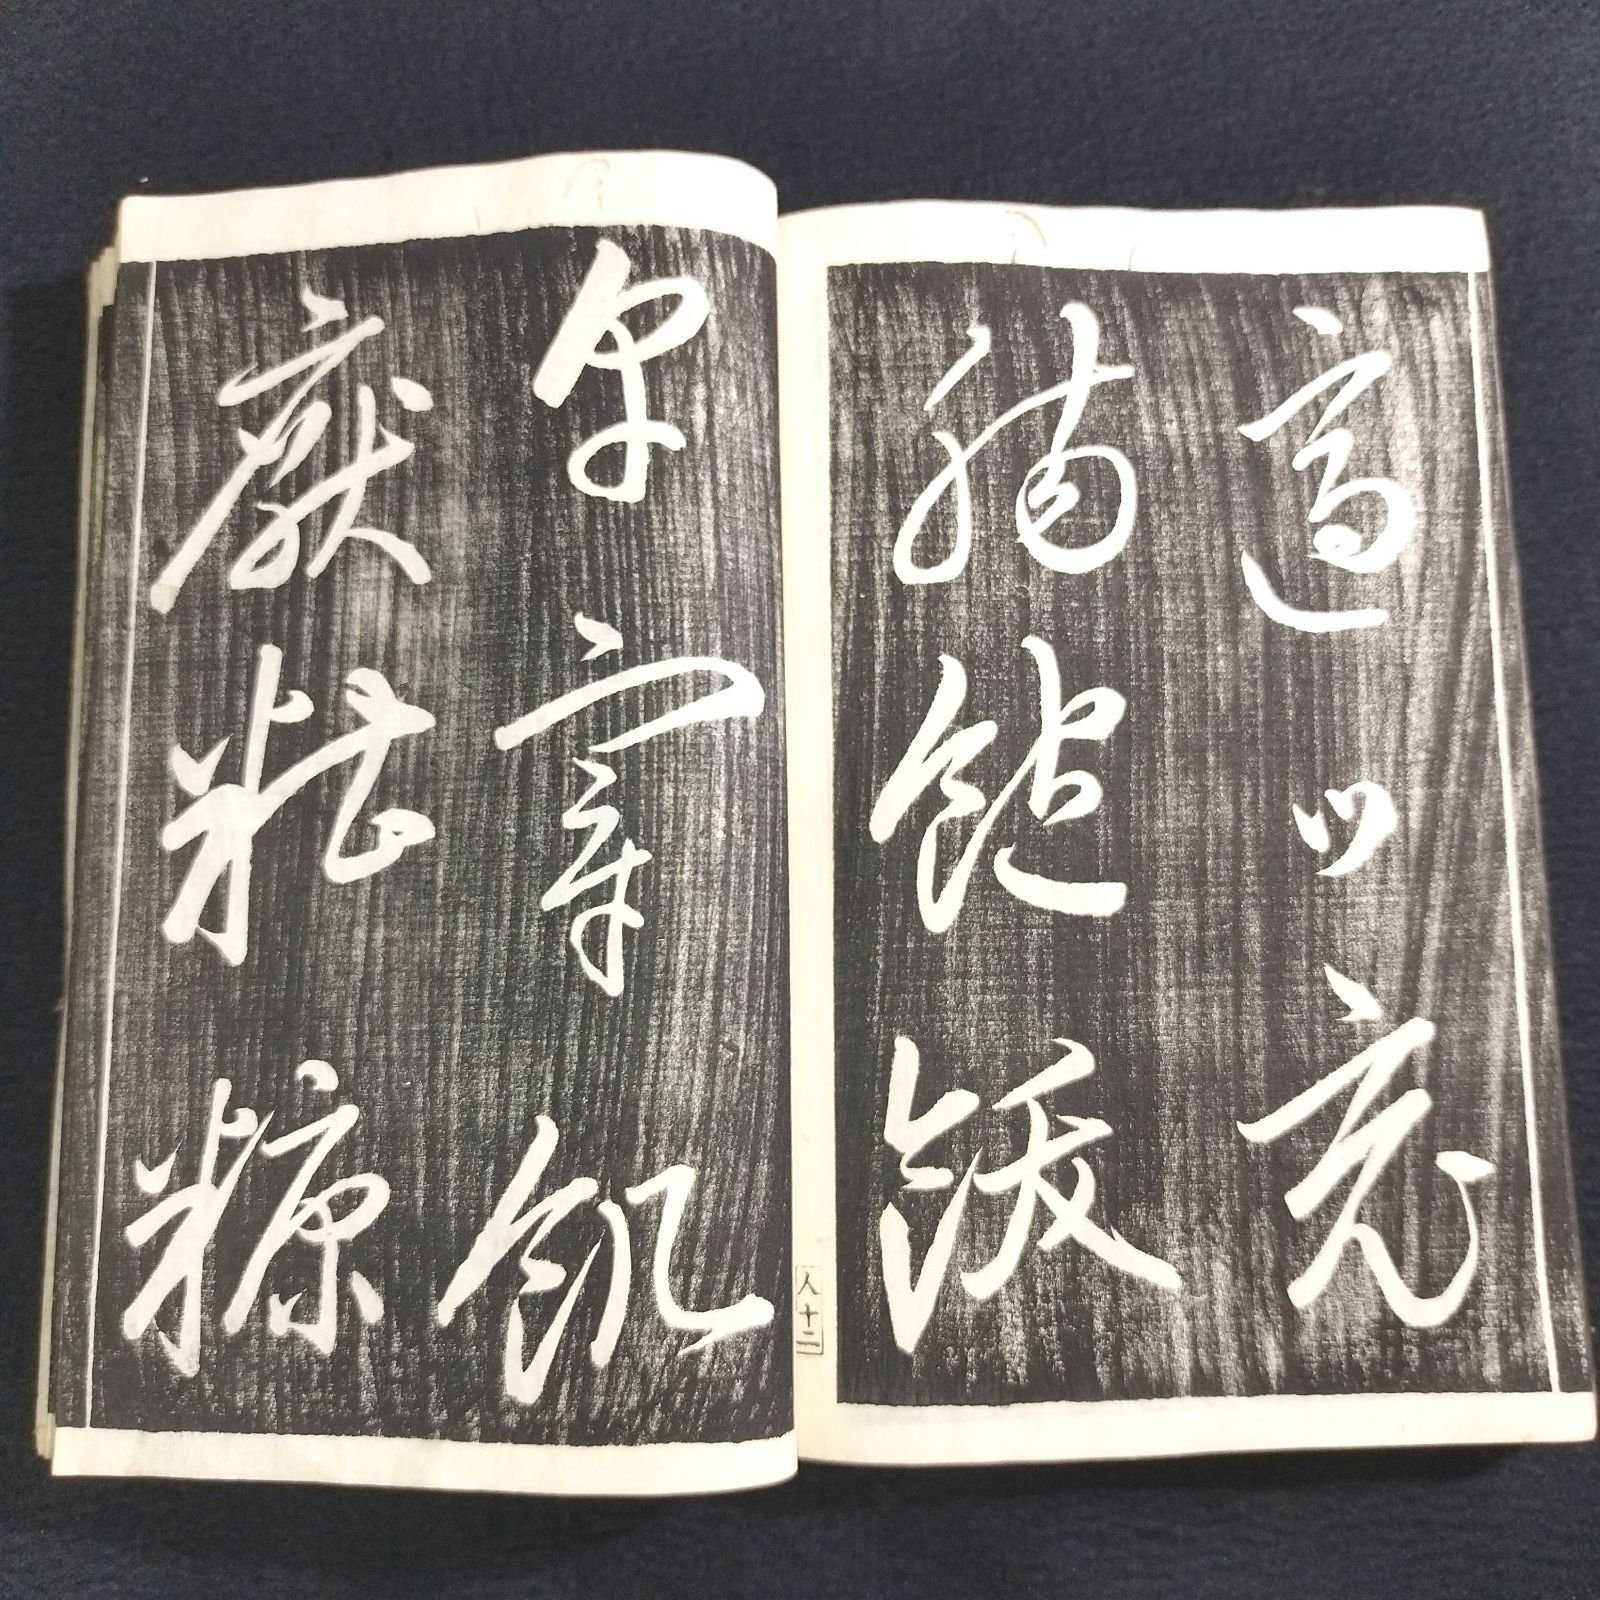 適口充
腸飽飫
烹宰飢
厭糟糠
人十二